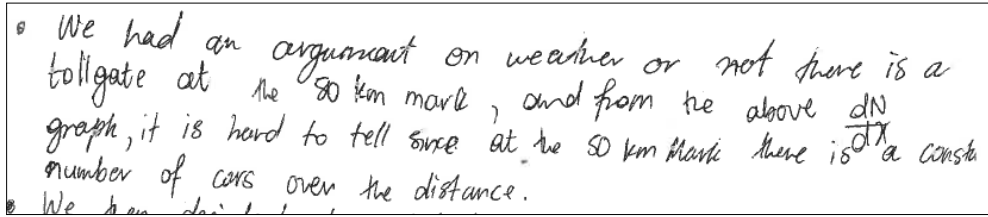 We had an argument on weather or not there is a
tollgate at the 80 km mark, and from the above dN/dX
graph, it is hard to tell since at the 50 km Mark there is a const
number of cars over the distance.
We